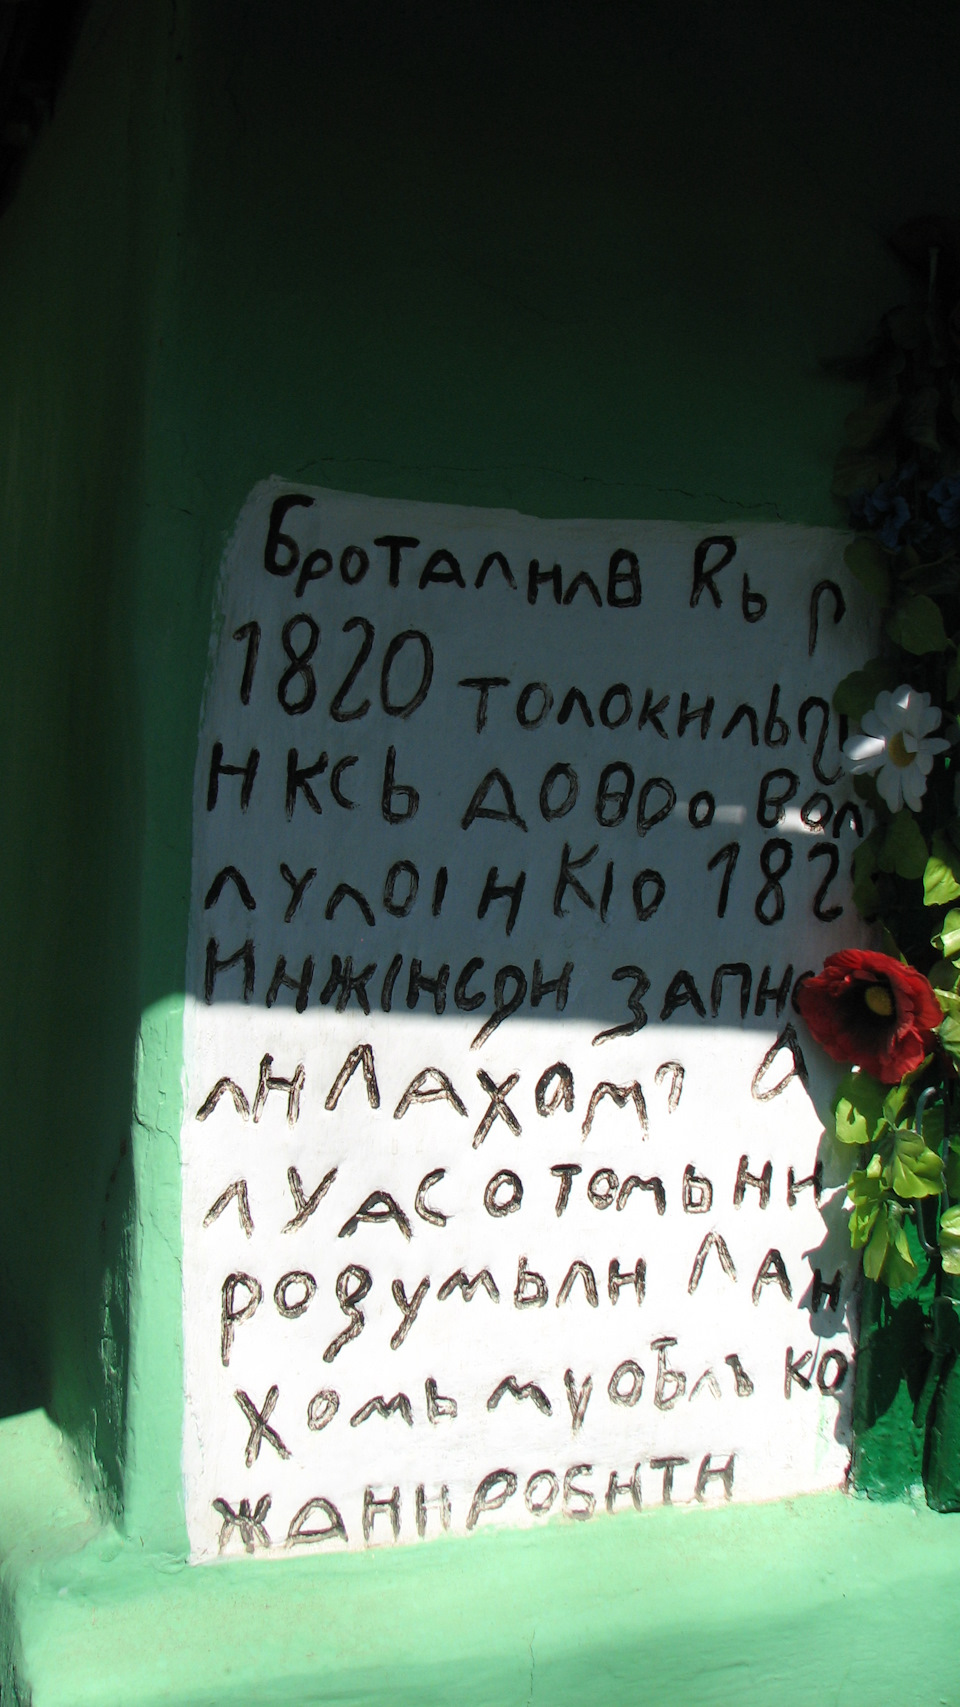 БРОТАЛНЛВ Rь Р
1820 ТОЛОКНЛЬ
Н КСЬ ДОВРО ВОЛ
ЛУЛОІ Н КІО 182
ИНЖІНСРН ЗАПНС
ЛН ЛАХОМ
ЛУДСОТОМЬНН
РОЗУМЬЛН ЛАН
ХОМЬ МУОБЛЪ КО
ЖАНН РОБНТН